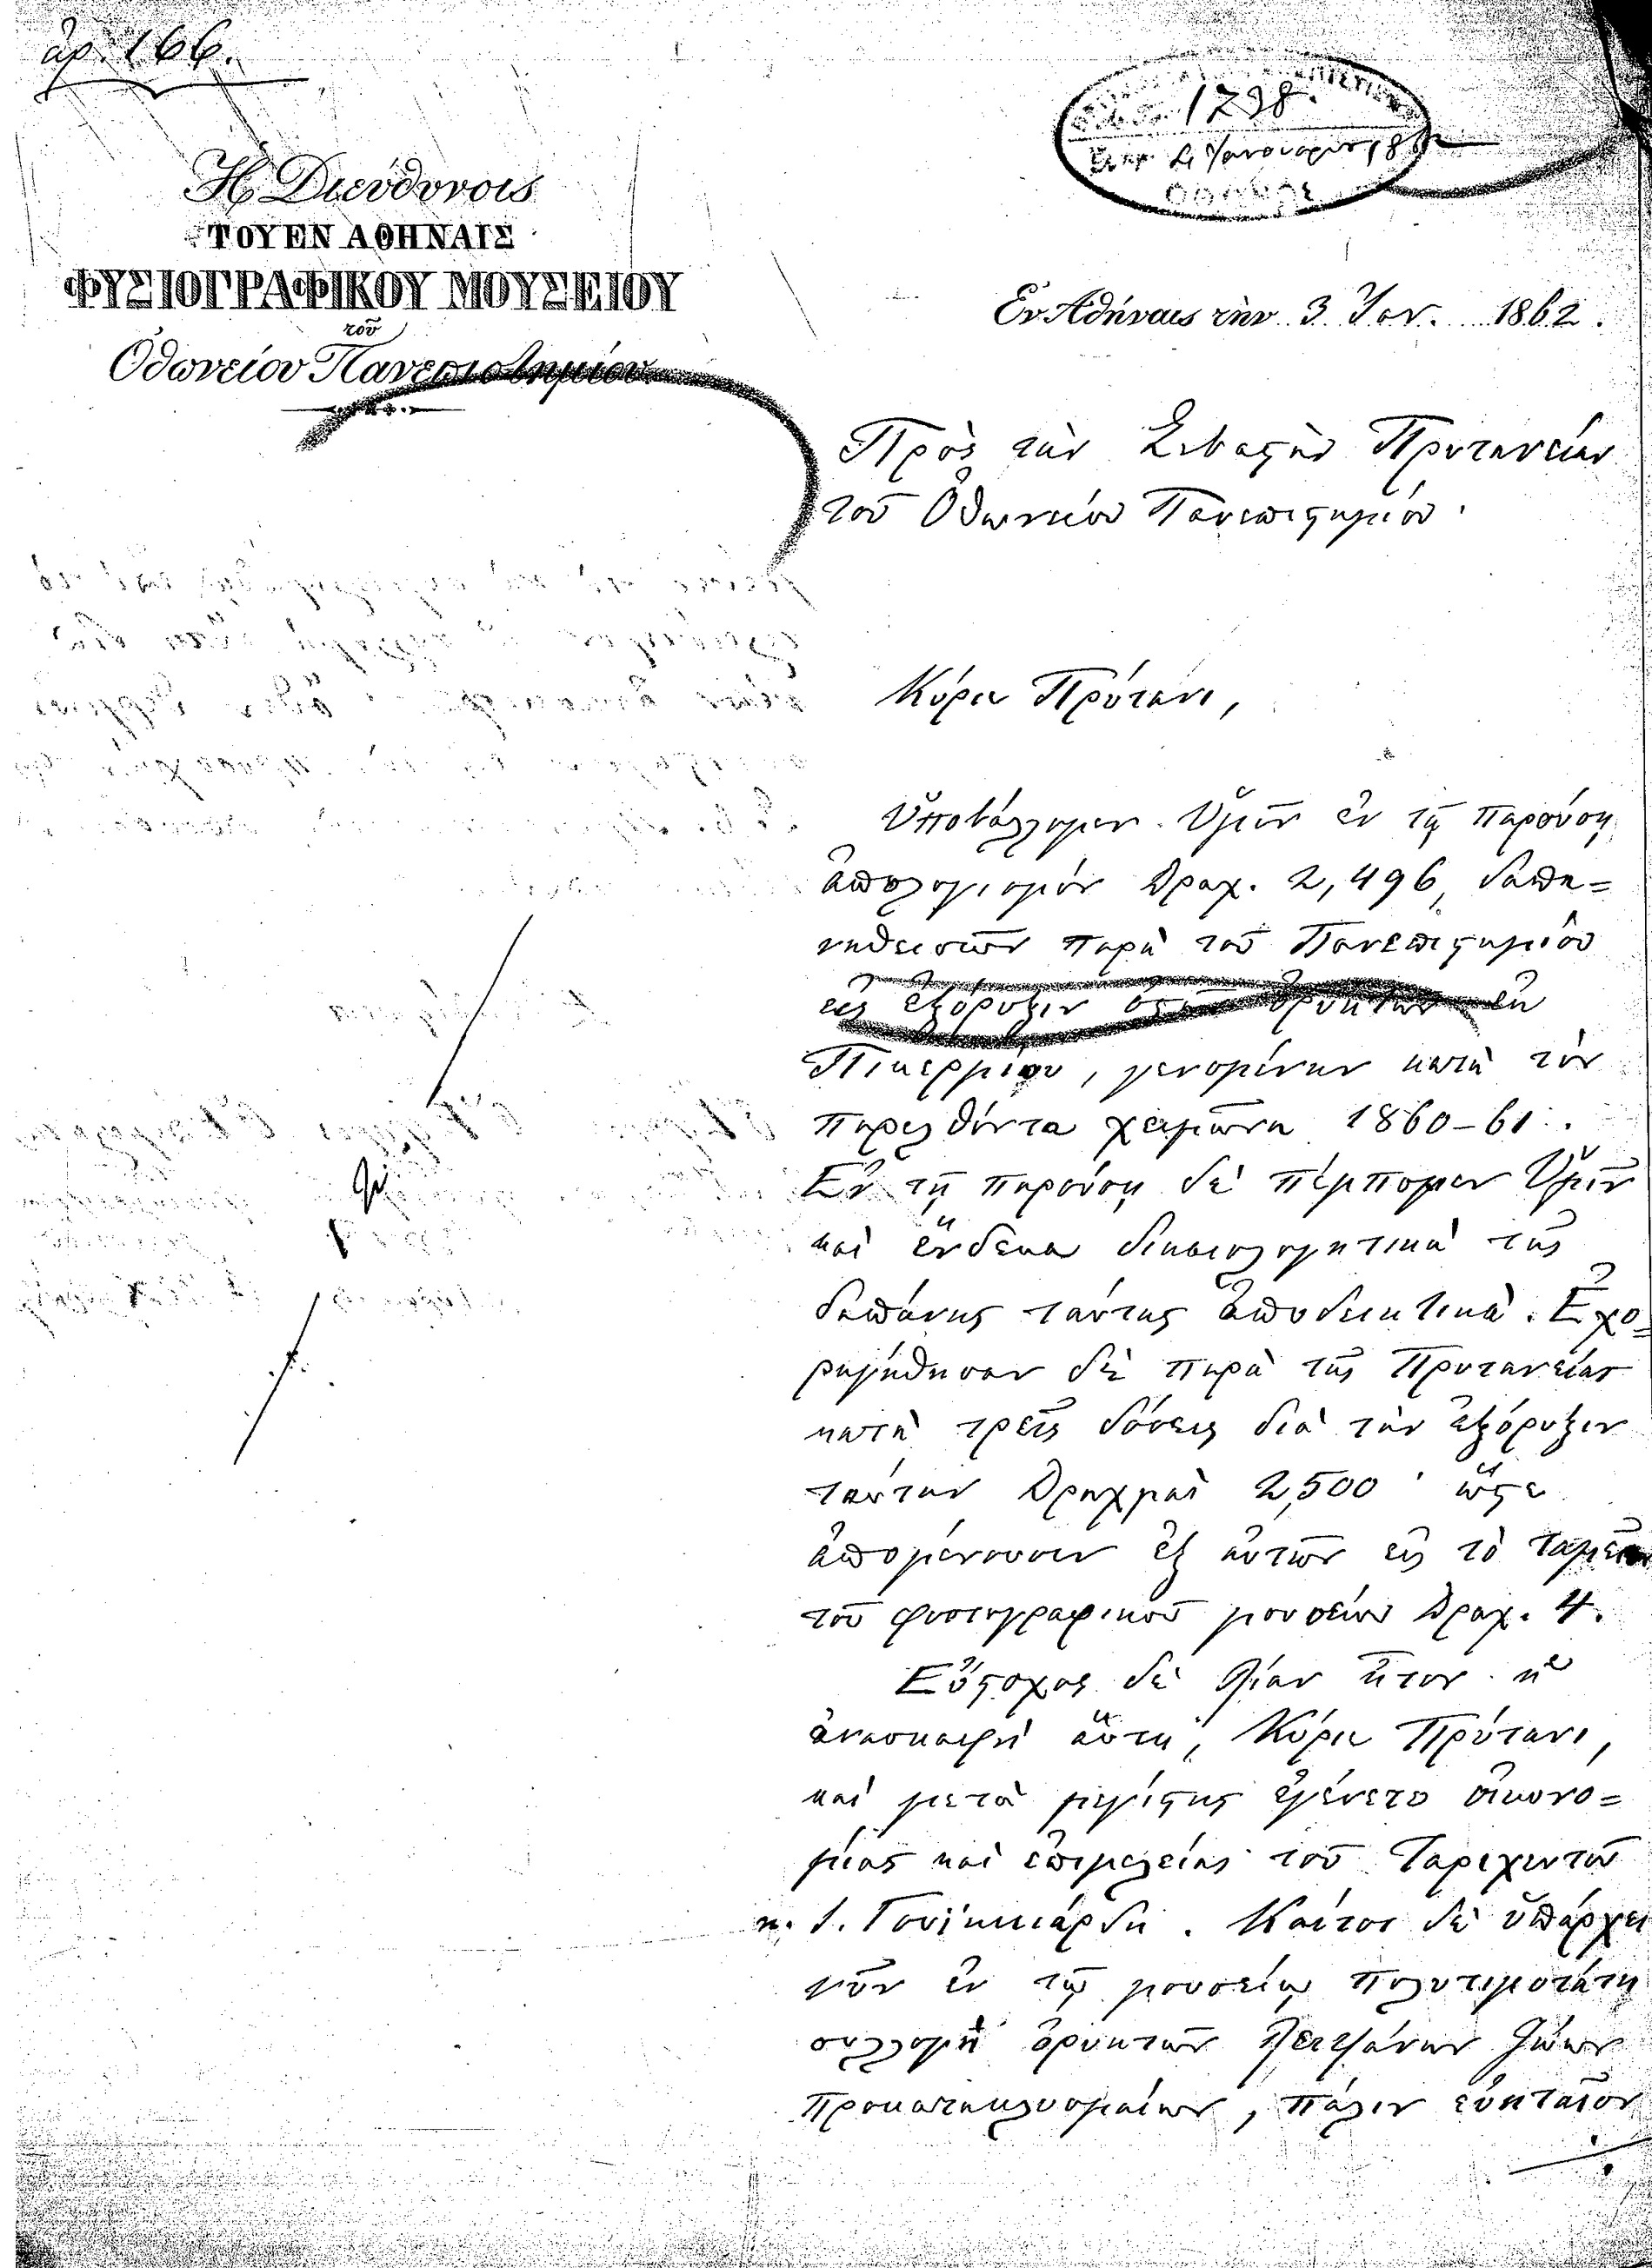 ἀρ. 166.
1798.
Ἡ Διεύθυνσις
ΤΟΥ ΕΝ ΑΘΗΝΑΙΣ
ΦΥΣΙΟΓΡΑΦΙΚΟΥ ΜΟΥΣΕΙΟΥ
τοῦ
Ὀθωνείου Πανεπιστημίου
Ἐν Ἀθήναις τὴν 3 Ἰαν. 1862.
Πρὸς τὴν Σεβαστὴν Πρυτανείαν
τοῦ Ὀθωνείου Πανεπιστημίου.
Κύριε Πρύτανι,
Ὑποβάλλομεν Ὑμῖν ἐν τῇ παρούσῃ
ἀπολογισμόν Δραχ. 2,496, δαπα=
νηθεισῶν παρὰ τοῦ Πανεπιστημίου
εἰς ἐξόρυξιν ὀστῶν ὀρυκτῶν ἐκ
Πικερμίου, γενομένην κατὰ τὸν
παρελθόντα χειμῶνα 1860-61.
Ἐν τῇ παρούσῃ δὲ πέμπομεν Ὑμῖν
καὶ ἕνδεκα δικαιολογητικὰ τῆς
δαπάνης ταύτης ἀποδεικτικὰ. Ἐχο=
ρηγήθησαν δὲ παρὰ τῆς Πρυτανείας
κατὰ τρεῖς δόσεις διὰ τὴν ἐξόρυξιν
ταύτην Δραχμαὶ 2,500 · ὥστε
ἀπομένουσιν ἐξ αὐτῶν εἰς τὸ ταμεῖον
τοῦ φυσιογραφικοῦ μουσείου Δραχ. 4.
Εὔστοχος δὲ λίαν ἦτον ἡ
ἀνασκαφὴ αὕτη, Κύριε Πρύτανι,
καὶ μετὰ μεγίστης ἐγένετο οἰκονο=
μίας καὶ ἐπιμελείας τοῦ Ταριχευτοῦ
κ. Ι. Γουϊκκιάρδη. Καίτοι δὲ ὑπάρχει
νῦν ἐν τῷ μουσείῳ πολυτιμοτάτη
συλλογὴ ὀρυκτῶν λειψάνων ζώων
προκατακλυσμαίων, πάλιν εὐκταῖον